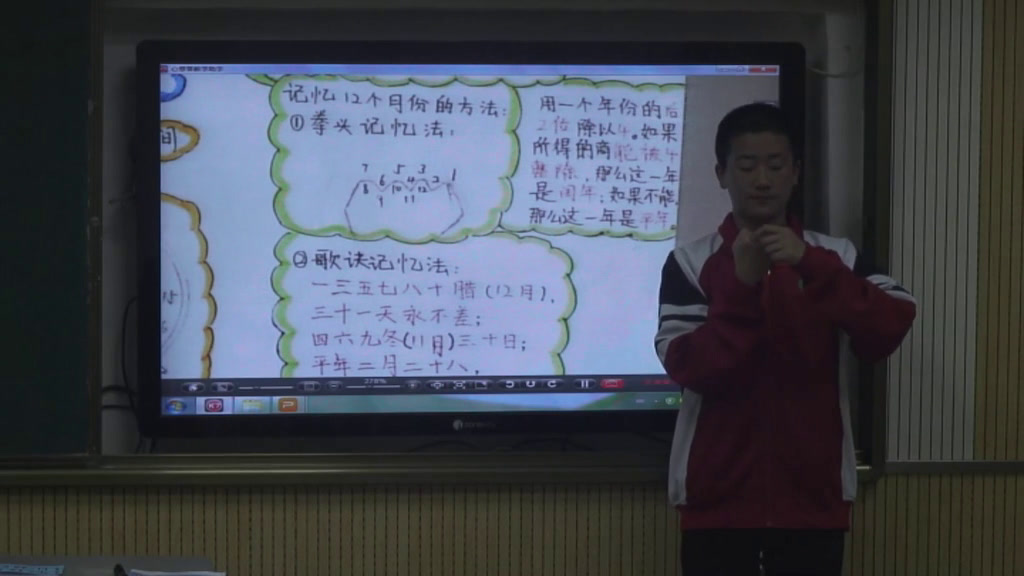 间
记忆12个月份的方法:
①拳头记忆法:
7 5 3 1
6 4 2
8 10 12
9 11
②歌诀记忆法:
一三五七八十腊(12月),
三十一天永不差;
四六九冬(11月)三十日;
平年二月二十八,
用一个年份的后
2位除以4。如果
所得的商能被4
整除,那么这一年
是闰年;如果不能,
那么这一年是平年